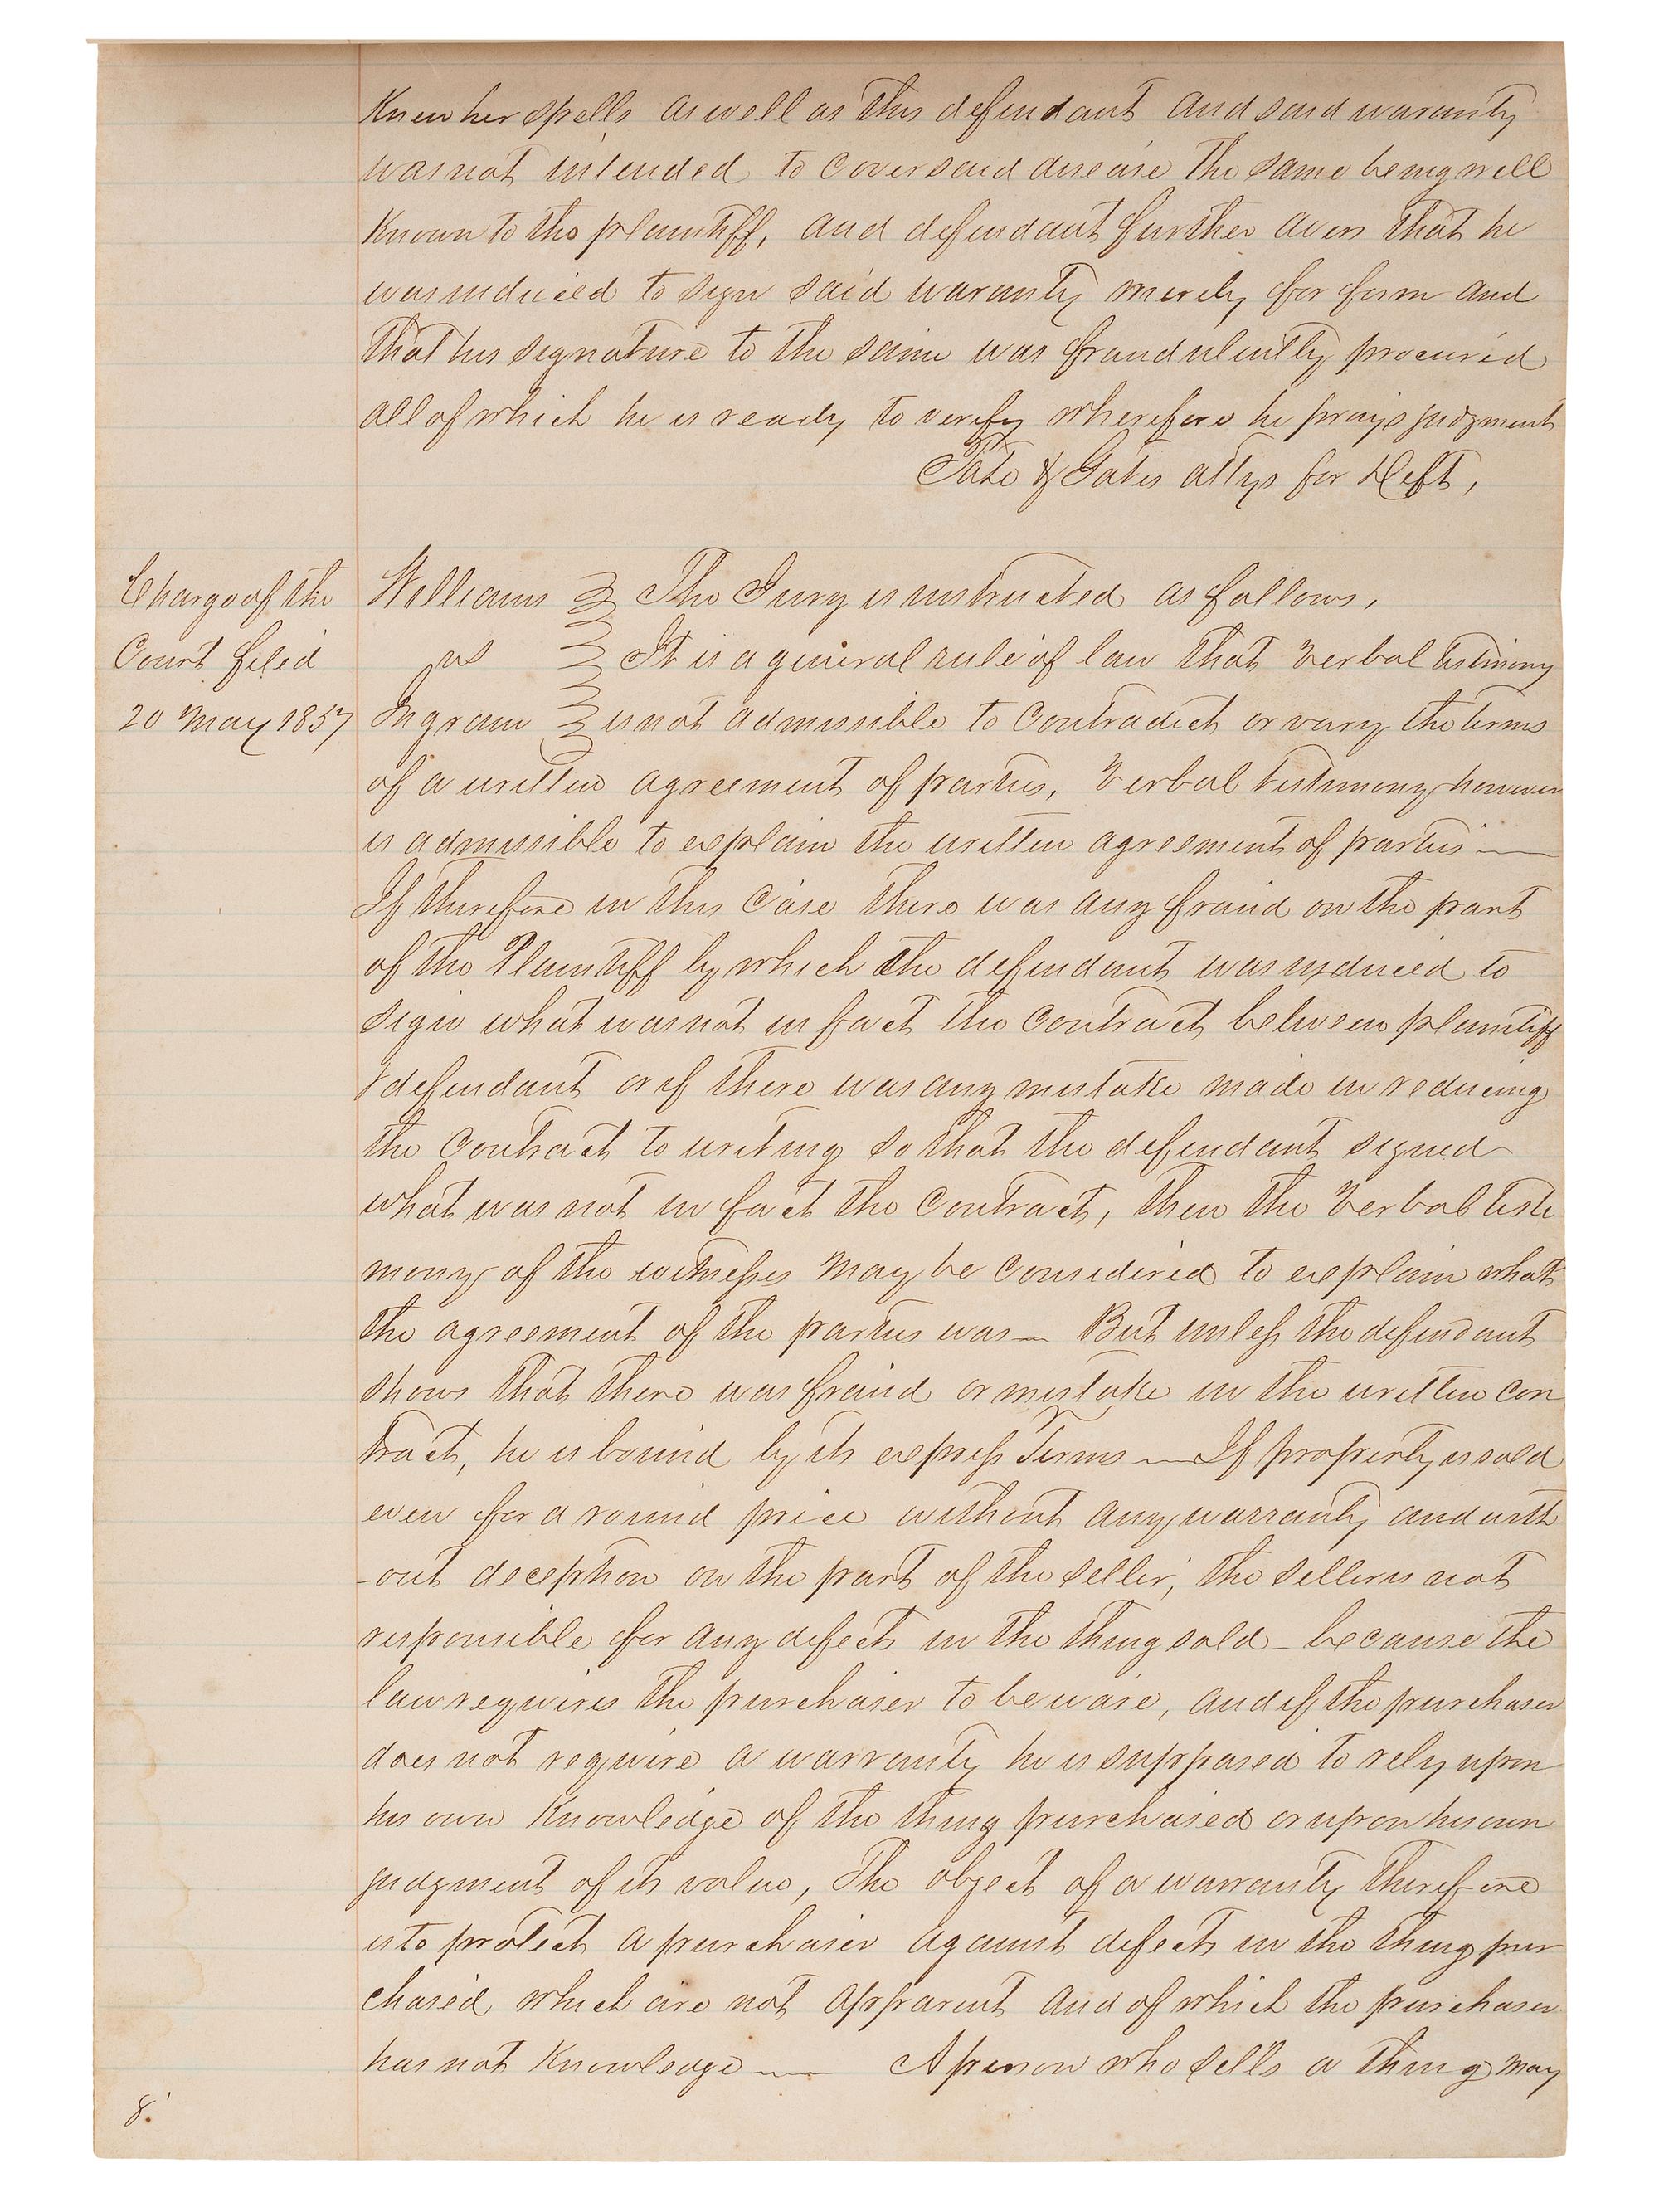 Knew her spells as well as this defendant and said waranty
was not intended to cover said disease the same being well
Known to the plaintiff, and defendant further avers that he
was induced to sign said waranty merely for form and
that his signature to the same was fraudulently procured
all of which he is ready to verify wherefore he prays judgment
Tate & Gates attys for Deft,
Charge of the
Court filed
20 May 1857
Williams The Jury is instructed as follows,
vs It is a general rule of law that verbal testimony
Ingram is not admissible to contradict or vary the terms
of a written agreement of parties, Verbal testimony however
is admissible to explain the written agreement of parties —
If therefore in this case there was any fraud on the part
of the Plaintiff by which the defendant was induced to
sign what was not in fact the contract between plaintiff
& defendant or if there was any mistake made in reducing
the contract to writing so that the defendant signed
what was not in fact the contract, then the verbal testi
mony of the witnesses may be considered to explain what
the agreement of the parties was — But unless the defendant
shows that there was fraud or mistake in the written con
tract, he is bound by its express Terms — If property is sold
even for a round price without any warranty and with
-out deception on the part of the seller, the seller is not
responsible for any defects in the thing sold - because the
law requires the purchaser to beware, and if the purchaser
does not require a warranty he is supposed to rely upon
his own Knowledge of the thing purchased or upon his own
judgment of its value, The object of a warranty therefore
is to protect a purchaser against defects in the thing pur
chased which are not apparent and of which the purchaser
has not Knowledge — A person who sells a thing may
8.